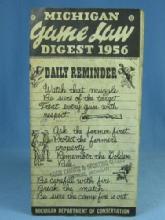 MICHIGAN
Game Law
DIGEST 1956
DAILY REMINDER
Watch that muzzle
Be sure of the target
Treat every gun with
respect
Ask the farmer first
Protect the farmer's
property
Remember the Golden
Rule
Be careful with fire
Break the match
Be sure the camp fire is out
MICHIGAN DEPARTMENT OF CONSERVATION